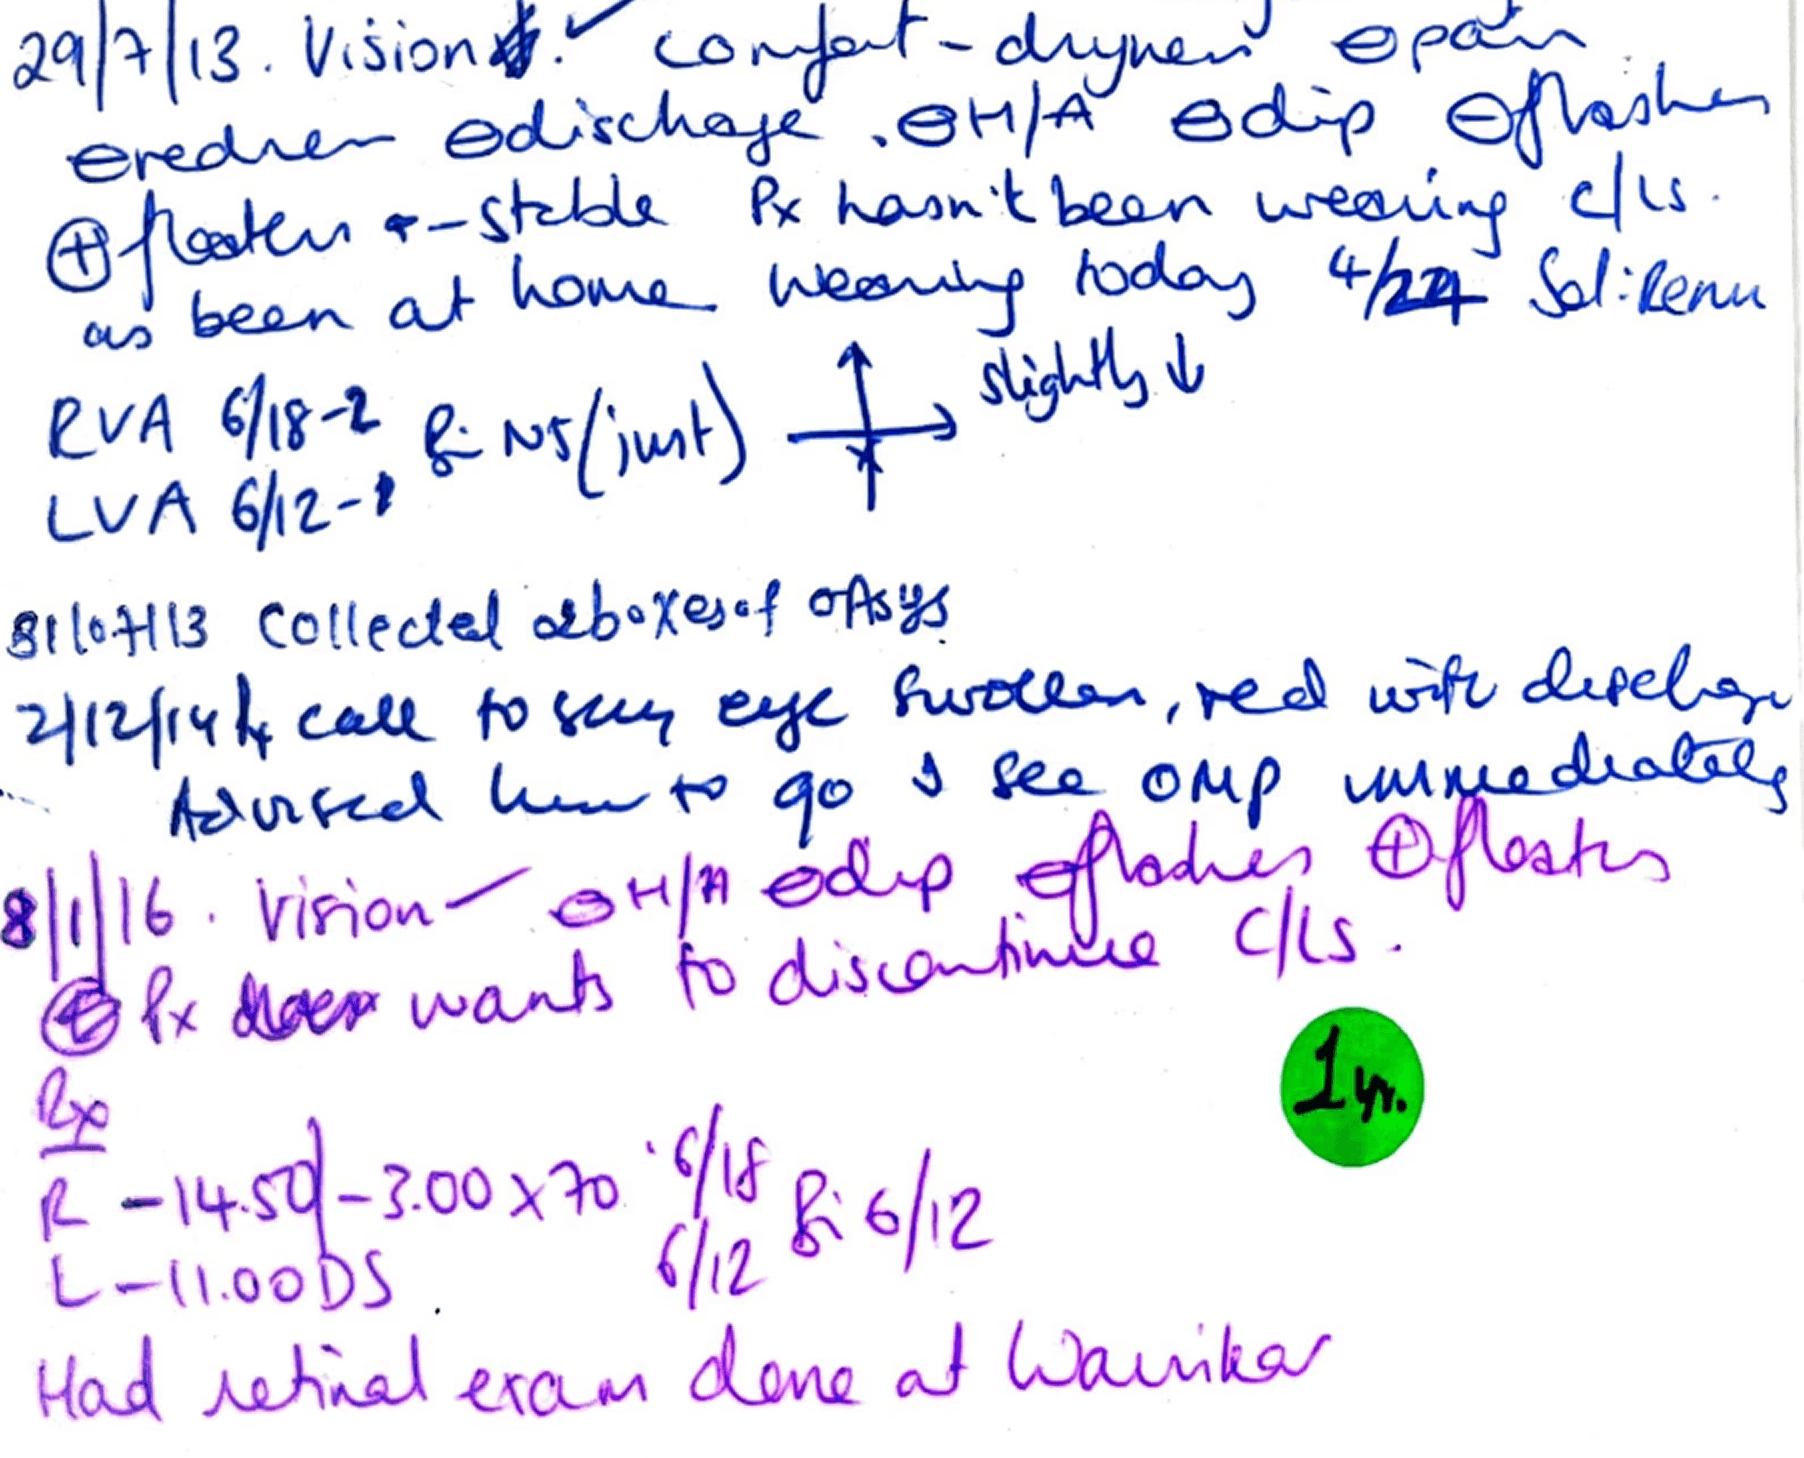 29/7/13. Vision ✓ comfort - dryness ⊖pain
⊖redness ⊖discharge. ⊖H/A ⊖dip ⊖flashes
⊕floaters - stable Px hasn't been wearing c/ls.
as been at home wearing today 4/24 Sol: Renu
RVA 6/18-2 Bi N5 (just) slightly ↓
LVA 6/12-1
31/07/13 Collected 2 boxes of oAsys
2/12/14 call to say eye swollen, red with discharge
Advised him to go & see OMP immediately
8/1/16. Vision ✓ ⊖H/A ⊖dip ⊖flashes ⊕floaters
Px wants to discontinue C/LS.
1 yr.
Rx
R -14.50/-3.00 x 70 6/18 Bi 6/12
L -11.00DS 6/12
Had retinal exam done at